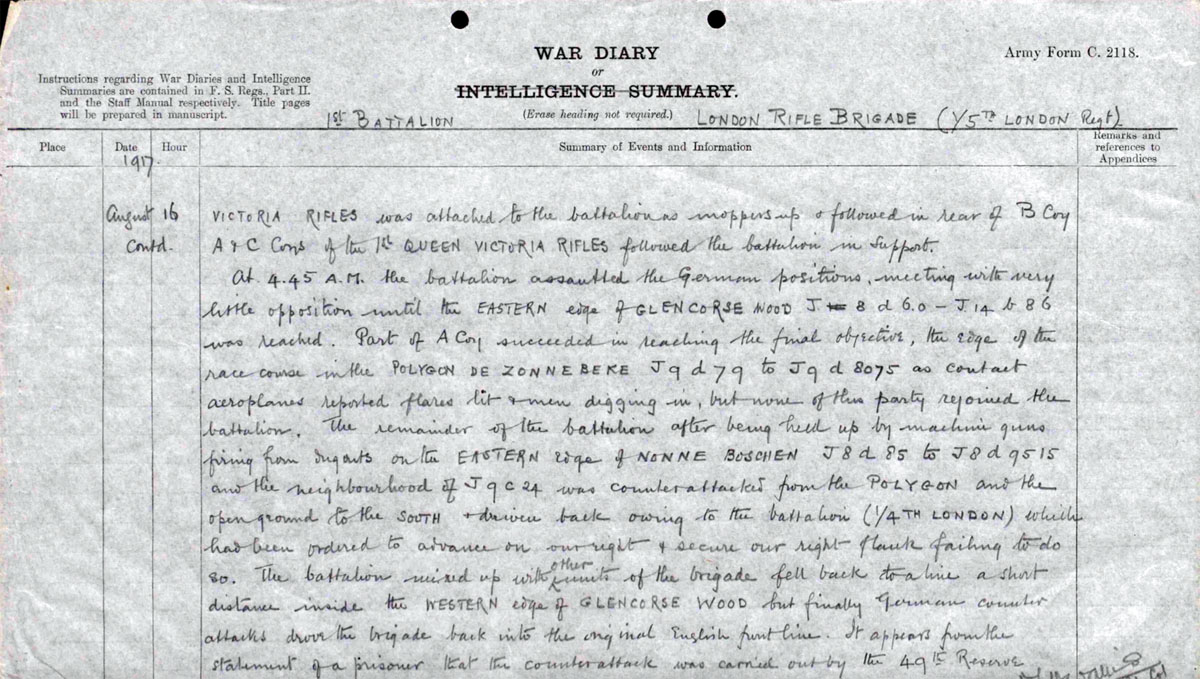 WAR DIARY
or
INTELLIGENCE SUMMARY.
(Erase heading not required.)
Army Form C. 2118.
Instructions regarding War Diaries and Intelligence
Summaries are contained in F. S. Regs., Part II.
and the Staff Manual respectively. Title pages
will be prepared in manuscript.
1st BATTALION LONDON RIFLE BRIGADE (1/5TH LONDON Regt).
Place Date Hour Summary of Events and Information Remarks and references to Appendices
1917
August 16
Contd.
VICTORIA RIFLES was attached to the battalion as moppers up & followed in rear of B Coy
A & C Coys of the 1st QUEEN VICTORIA RIFLES followed the battalion in support.
At 4.45 A.M. the battalion assaulted the German positions, meeting with very
little opposition until the EASTERN edge of GLENCORSE WOOD J 8 d 6.0 – J.14 b 8 6
was reached. Part of A Coy succeeded in reaching the final objective, the edge of the
race course in the POLYGON DE ZONNEBEKE J 9 d 7 9 to J 9 d 8075 as contact
aeroplanes reported flares lit & men digging in, but none of this party rejoined the
battalion. The remainder of the battalion after being held up by machine guns
firing from dugouts on the EASTERN edge of NONNE BOSCHEN J 8 d 85 to J 8 d 95 15
and the neighbourhood of J 9 c 24 was counterattacked from the POLYGON and the
open ground to the SOUTH & driven back owing to the battalion (1/4TH LONDON) which
had been ordered to advance on our right & secure our right flank failing to do
so. The battalion mixed up with other units of the brigade fell back to a line a short
distance inside the WESTERN edge of GLENCORSE WOOD but finally German counter
attacks drove the brigade back into the original English front line. It appears from the
statement of a prisoner that the counterattack was carried out by the 49th Reserve